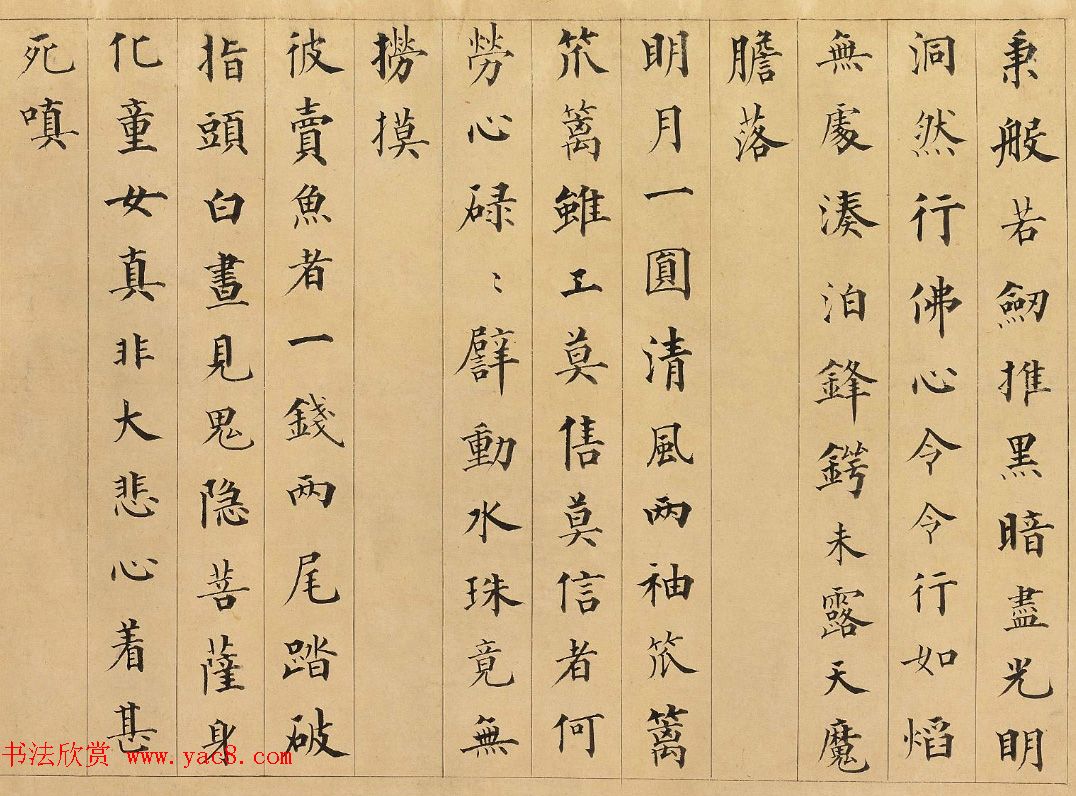 秉般若劒推黑暗盡光明
洞然行佛心令令行如熖
無處湊泊鋒鍔未露天魔
膽落
明月一圓清風两袖笊篱
笊篱雖工莫售莫信者何
勞心碌〻劈動水珠竟無
撈摸
彼賣魚者一錢两尾踏破
指頭白晝見鬼隐菩薩身
化童女真非大悲心着甚
死嗔
书法欣赏 www.yac8.com